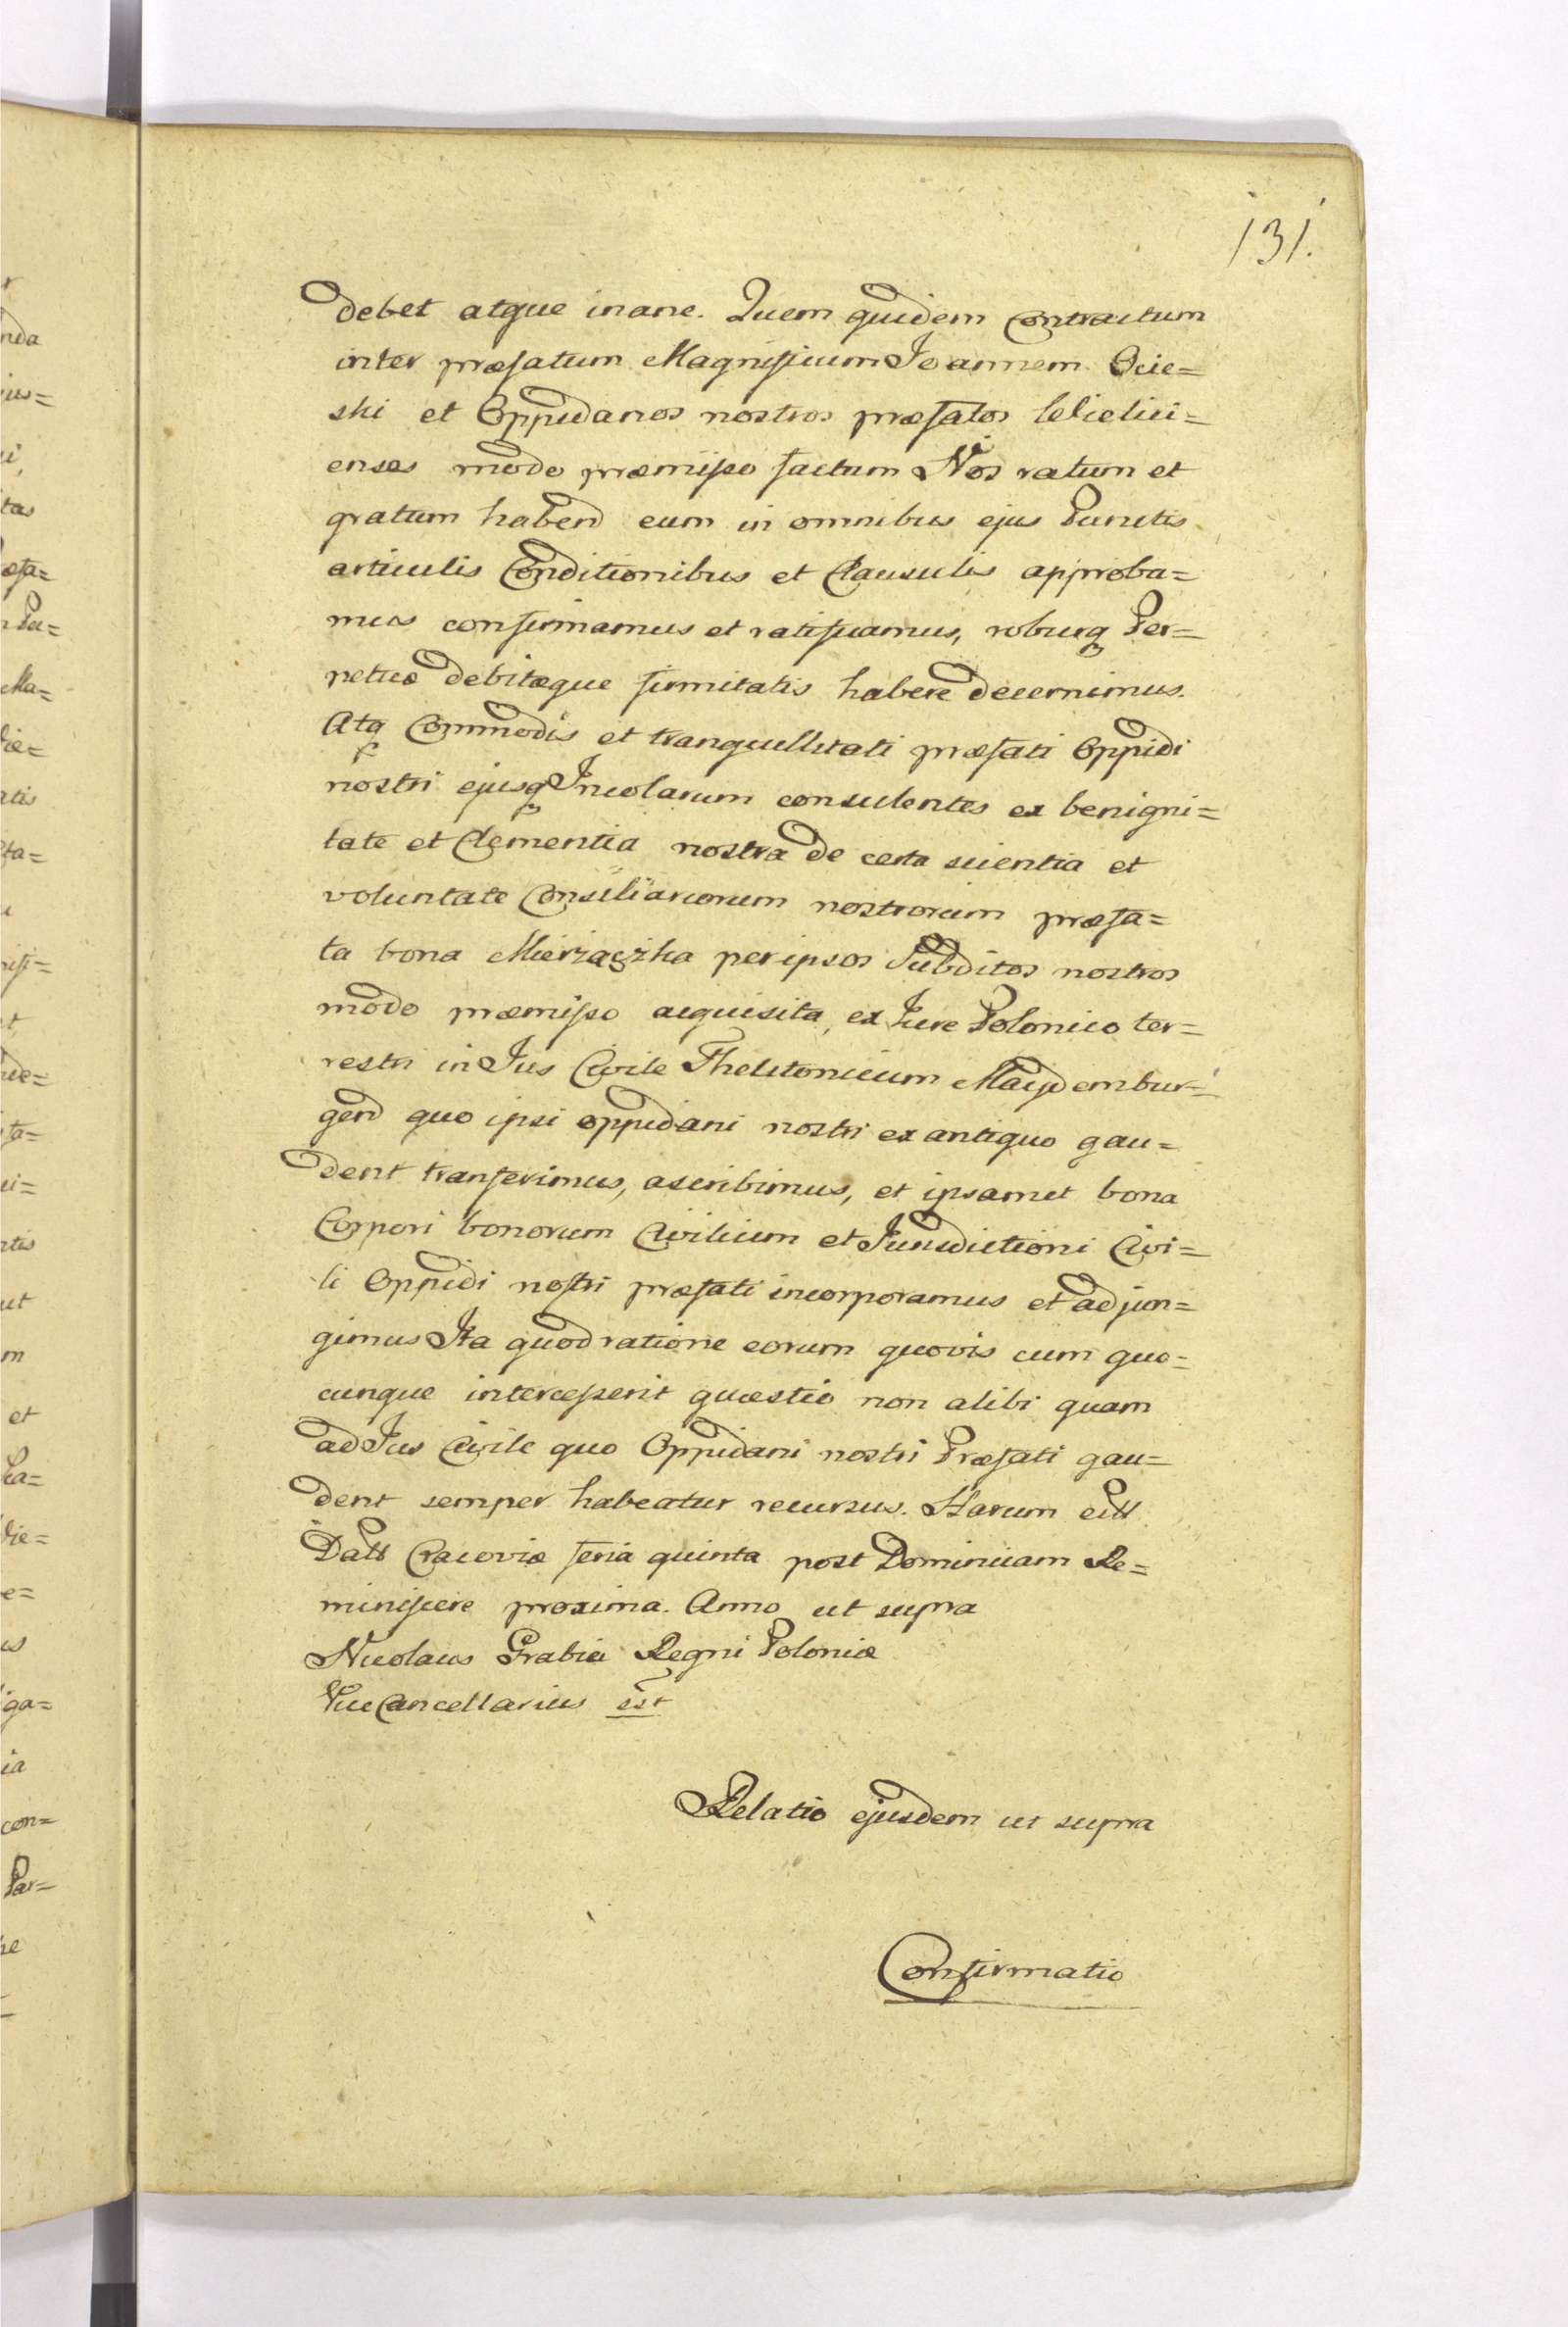 131.
debet atque inane. Quem quidem Contractum
inter præfatum Magnificum Joannem Ocie=
ski et Oppidanos nostros præfatos
enses modo præmisso factum Nos ratum et
gratum habend eum in omnibus ejus Punctis
articulis Conditionibus et Clausulis approba=
mus confirmamus et ratificamus, roburq Per=
petuæ debitæque firmitatis habere decernimus.
Atq Commodis et tranquillitati præfati Oppidi
nostri ejusq Incolarum consulentes ex benigni=
tate et Clementia nostra de certa scientia et
voluntate Consiliariorum nostrorum præfa=
ta bona Mierzaczka per ipsos Subditos nostros
modo præmisso acquisita, ex Jure Polonico ter=
restri in Jus Civile Theutonicum Maydembur=
gend quo ipsi oppidani nostri ex antiquo gau=
dent transferimus, ascribimus, et ipsamet bona
Corpori bonorum Civilium et Jurisdictioni Civi=
li Oppidi nostri præfati incorporamus et adjun=
gimus Ita quod ratione eorum quovis cum quo=
cunque intercesserit quæstio non alibi quam
ad Jus Civile quo Oppidani nostri Præfati gau=
dent semper habeatur recursus. Harum
Datt Cracoviæ feria quinta post Dominicam Re=
miniscere proxima. Anno ut supra
Nicolaus Grabia Regni Poloniæ
ViceCancellarius sst
Relatio ejusdem ut supra
Confirmatio
nda
ius=
tas
æfa=
Ma=
die=
atis
ta=
t
ut
m
et
die=
e=
ga=
ia
con=
Par=